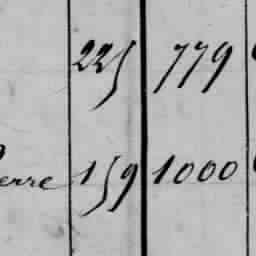 225 779
erre 159 1000